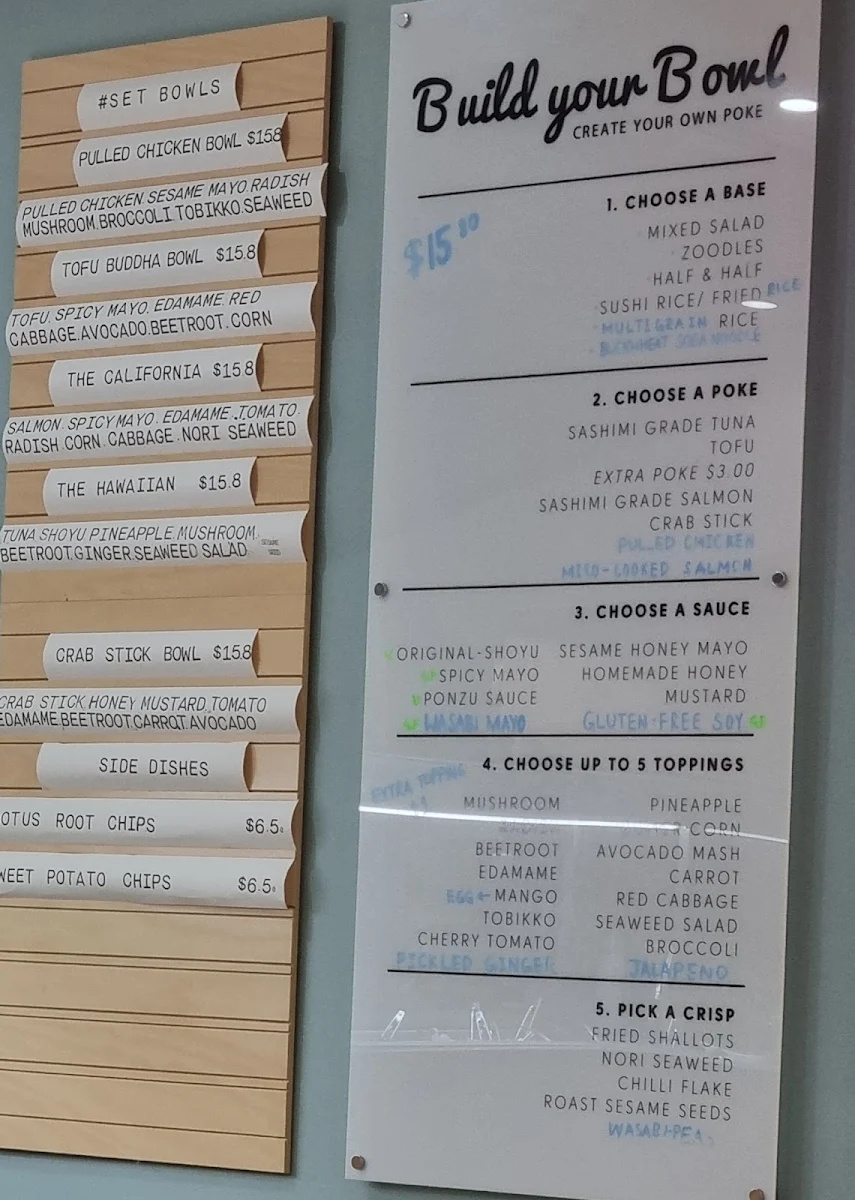 #SET BOWLS
PULLED CHICKEN BOWL $15.8
PULLED CHICKEN.SESAME MAYO.RADISH
MUSHROOM.BROCCOLI.TOBIKKO.SEAWEED
TOFU BUDDHA BOWL $15.8
TOFU. SPICY MAYO. EDAMAME. RED
CABBAGE.AVOCADO.BEETROOT.CORN
THE CALIFORNIA $15.8
SALMON.SPICY MAYO.EDAMAME.TOMATO.
RADISH CORN.CABBAGE.NORI SEAWEED
THE HAWAIIAN $15.8
TUNA SHOYU PINEAPPLE MUSHROOM.
BEETROOT.GINGER.SEAWEED SALAD
SESAME
SEEDS
CRAB STICK BOWL $15.8
CRAB STICK.HONEY MUSTARD.TOMATO
EDAMAME.BEETROOT.CARROT.AVOCADO
SIDE DISHES
OTUS ROOT CHIPS $6.5
WEET POTATO CHIPS $6.5
Build your Bowl
CREATE YOUR OWN POKE
1. CHOOSE A BASE
$15.80
MIXED SALAD
ZOODLES
HALF & HALF
SUSHI RICE/ FRIED RICE
MULTIGRAIN RICE
BUCKWHEAT SOBA NOODLE
2. CHOOSE A POKE
SASHIMI GRADE TUNA
TOFU
EXTRA POKE $3.00
SASHIMI GRADE SALMON
CRAB STICK
PULLED CHICKEN
MISO-COOKED SALMON
3. CHOOSE A SAUCE
ORIGINAL-SHOYU SESAME HONEY MAYO
SPICY MAYO HOMEMADE HONEY
PONZU SAUCE MUSTARD
WASABI MAYO GLUTEN-FREE SOY
4. CHOOSE UP TO 5 TOPPINGS
EXTRA TOPPING
MUSHROOM PINEAPPLE
CORN
BEETROOT AVOCADO MASH
EDAMAME CARROT
EGG ← MANGO RED CABBAGE
TOBIKKO SEAWEED SALAD
CHERRY TOMATO BROCCOLI
PICKLED GINGER JALAPENO
5. PICK A CRISP
FRIED SHALLOTS
NORI SEAWEED
CHILLI FLAKE
ROAST SESAME SEEDS
WASABI-PEA